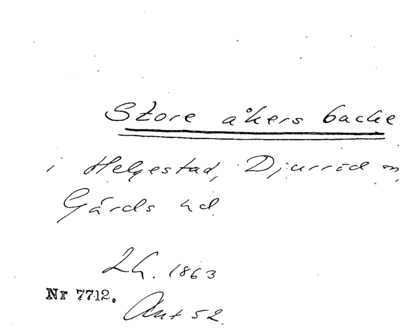 Store åkers backe
i Helgestad, Djurröd
Gårds hd
1863
Nr 7712.
Ant 52